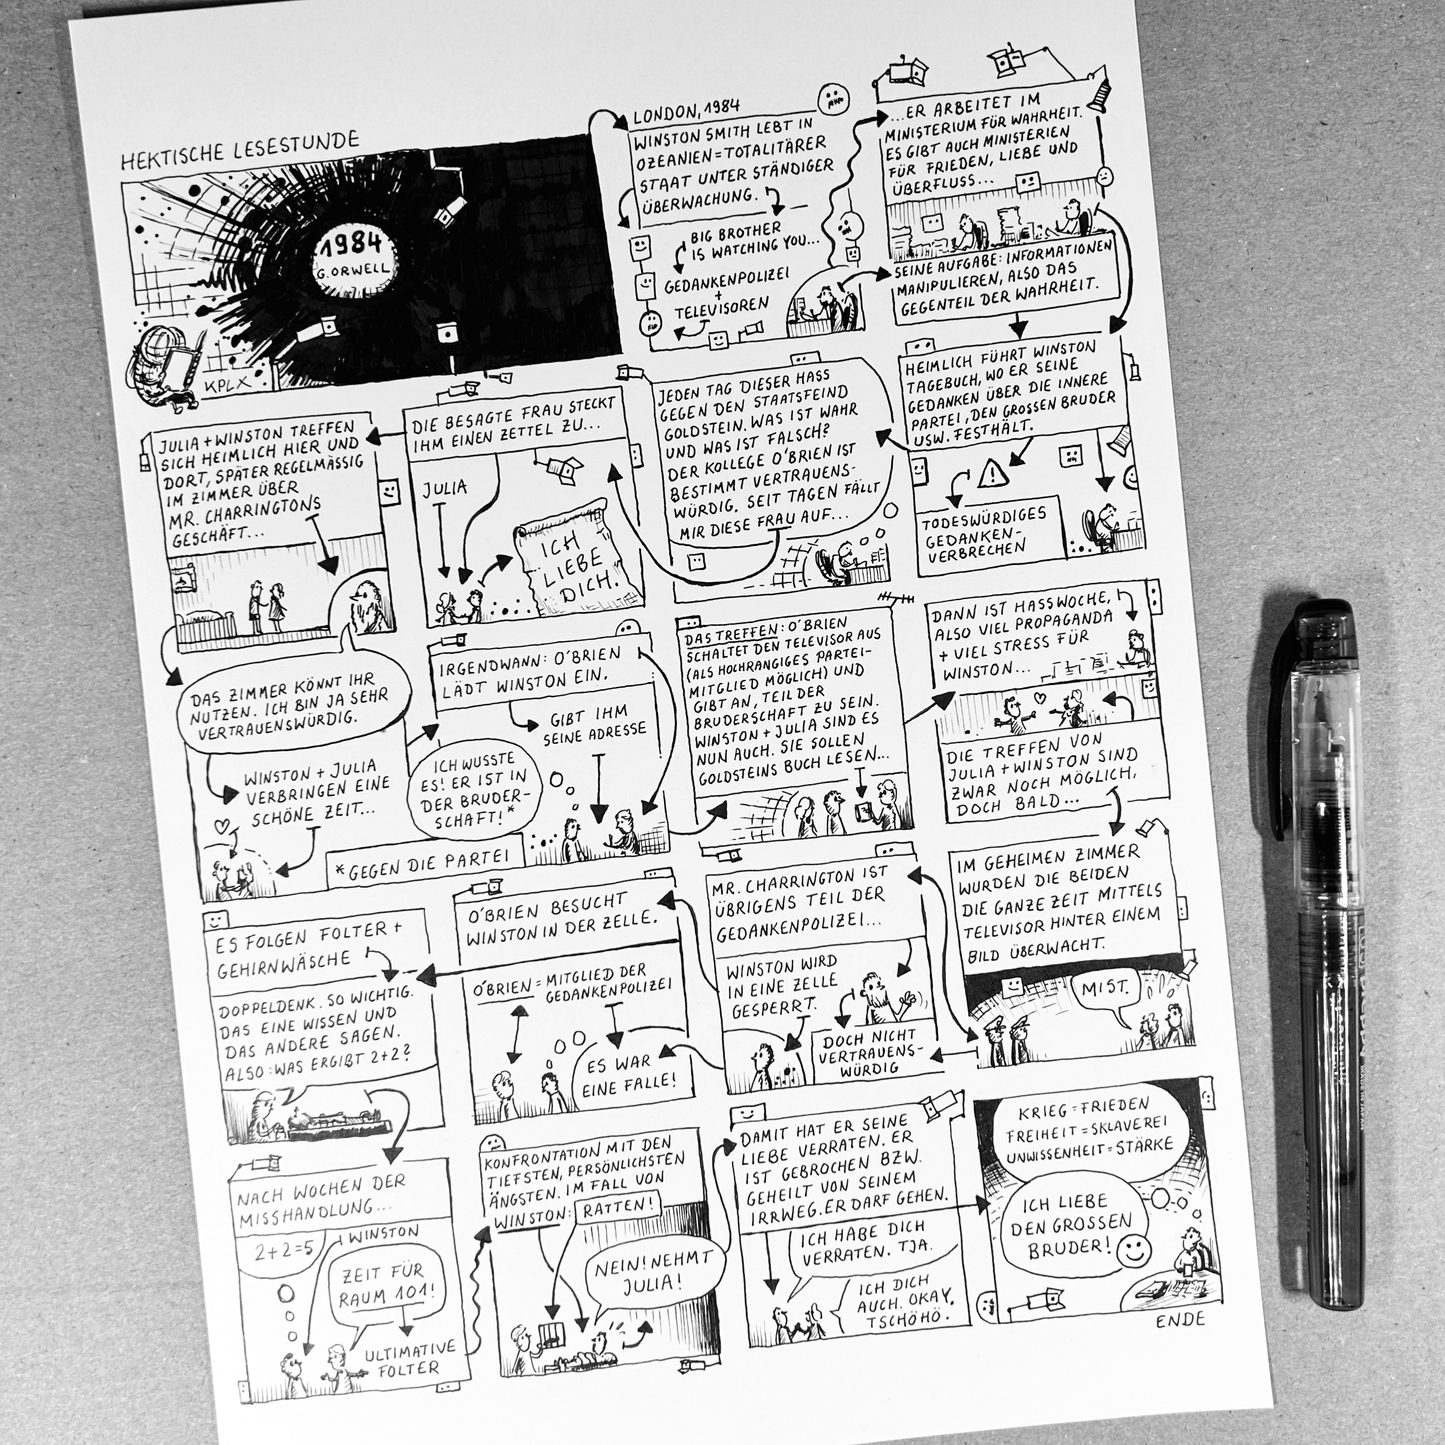 HEKTISCHE LESESTUNDE
1984
G. ORWELL
KPLX
LONDON, 1984
WINSTON SMITH LEBT IN
OZEANIEN = TOTALITÄRER
STAAT UNTER STÄNDIGER
ÜBERWACHUNG.
BIG BROTHER
IS WATCHING YOU...
GEDANKENPOLIZEI
+
TELEVISOREN
...ER ARBEITET IM
MINISTERIUM FÜR WAHRHEIT.
ES GIBT AUCH MINISTERIEN
FÜR FRIEDEN, LIEBE UND
ÜBERFLUSS...
SEINE AUFGABE: INFORMATIONEN
MANIPULIEREN, ALSO DAS
GEGENTEIL DER WAHRHEIT.
HEIMLICH FÜHRT WINSTON
TAGEBUCH, WO ER SEINE
GEDANKEN ÜBER DIE INNERE
PARTEI, DEN GROSSEN BRUDER
USW. FESTHÄLT.
TODESWÜRDIGES
GEDANKEN-
VERBRECHEN
JEDEN TAG DIESER HASS
GEGEN DEN STAATSFEIND
GOLDSTEIN. WAS IST WAHR
UND WAS IST FALSCH?
DER KOLLEGE O'BRIEN IST
BESTIMMT VERTRAUENS-
WÜRDIG. SEIT TAGEN FÄLLT
MIR DIESE FRAU AUF...
DIE BESAGTE FRAU STECKT
IHM EINEN ZETTEL ZU...
JULIA
ICH
LIEBE
DICH."
JULIA + WINSTON TREFFEN
SICH HEIMLICH HIER UND
DORT, SPÄTER REGELMÄSSIG
IM ZIMMER ÜBER
MR. CHARRINGTONS
GESCHÄFT...
DAS ZIMMER KÖNNT IHR
NUTZEN. ICH BIN JA SEHR
VERTRAUENSWÜRDIG.
WINSTON + JULIA
VERBRINGEN EINE
SCHÖNE ZEIT...
IRGENDWANN: O'BRIEN
LÄDT WINSTON EIN.
GIBT IHM
SEINE ADRESSE
ICH WUSSTE
ES! ER IST IN
DER BRUDER-
SCHAFT!*
*GEGEN DIE PARTEI
DAS TREFFEN: O'BRIEN
SCHALTET DEN TELEVISOR AUS
(ALS HOCHRANGIGES PARTEI-
MITGLIED MÖGLICH) UND
GIBT AN, TEIL DER
BRUDERSCHAFT ZU SEIN.
WINSTON + JULIA SIND ES
NUN AUCH. SIE SOLLEN
GOLDSTEINS BUCH LESEN...
DANN IST HASSWOCHE,
ALSO VIEL PROPAGANDA
+ VIEL STRESS FÜR
WINSTON...
DIE TREFFEN VON
JULIA + WINSTON SIND
ZWAR NOCH MÖGLICH,
DOCH BALD...
IM GEHEIMEN ZIMMER
WURDEN DIE BEIDEN
DIE GANZE ZEIT MITTELS
TELEVISOR HINTER EINEM
BILD ÜBERWACHT.
MIST.
MR. CHARRINGTON IST
ÜBRIGENS TEIL DER
GEDANKENPOLIZEI...
WINSTON WIRD
IN EINE ZELLE
GESPERRT.
DOCH NICHT
VERTRAUENS-
WÜRDIG
O'BRIEN BESUCHT
WINSTON IN DER ZELLE.
O'BRIEN = MITGLIED DER
GEDANKENPOLIZEI
ES WAR
EINE FALLE!
ES FOLGEN FOLTER +
GEHIRNWÄSCHE
DOPPELDENK. SO WICHTIG.
DAS EINE WISSEN UND
DAS ANDERE SAGEN.
ALSO: WAS ERGIBT 2+2?
NACH WOCHEN DER
MISSHANDLUNG...
2+2=5
WINSTON
ZEIT FÜR
RAUM 101!
ULTIMATIVE
FOLTER
KONFRONTATION MIT DEN
TIEFSTEN, PERSÖNLICHSTEN
ÄNGSTEN. IM FALL VON
WINSTON: RATTEN!
NEIN! NEHMT
JULIA!
DAMIT HAT ER SEINE
LIEBE VERRATEN. ER
IST GEBROCHEN BZW.
GEHEILT VON SEINEM
IRRWEG. ER DARF GEHEN.
ICH HABE DICH
VERRATEN. TJA.
ICH DICH
AUCH. OKAY,
TSCHÖHÖ.
KRIEG = FRIEDEN
FREIHEIT = SKLAVEREI
UNWISSENHEIT = STÄRKE
ICH LIEBE
DEN GROSSEN
BRUDER!
ENDE